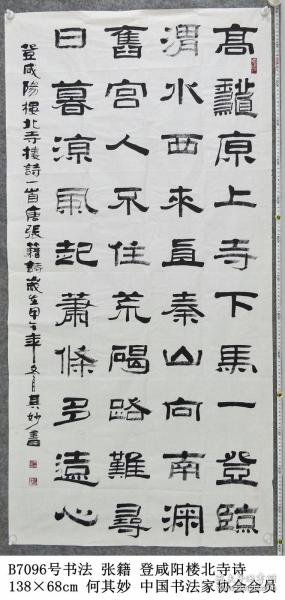 高龝原上寺下馬一登臨
渭水西來直秦山向南深
舊宮人不住荒碣路難尋
日暮涼風起蕭條多遠心
登咸陽樓北寺樓詩一首唐張籍詩歲在甲午年冬月其妙書
B7096号书法 张籍 登咸阳楼北寺诗
138×68cm 何其妙 中国书法家协会会员